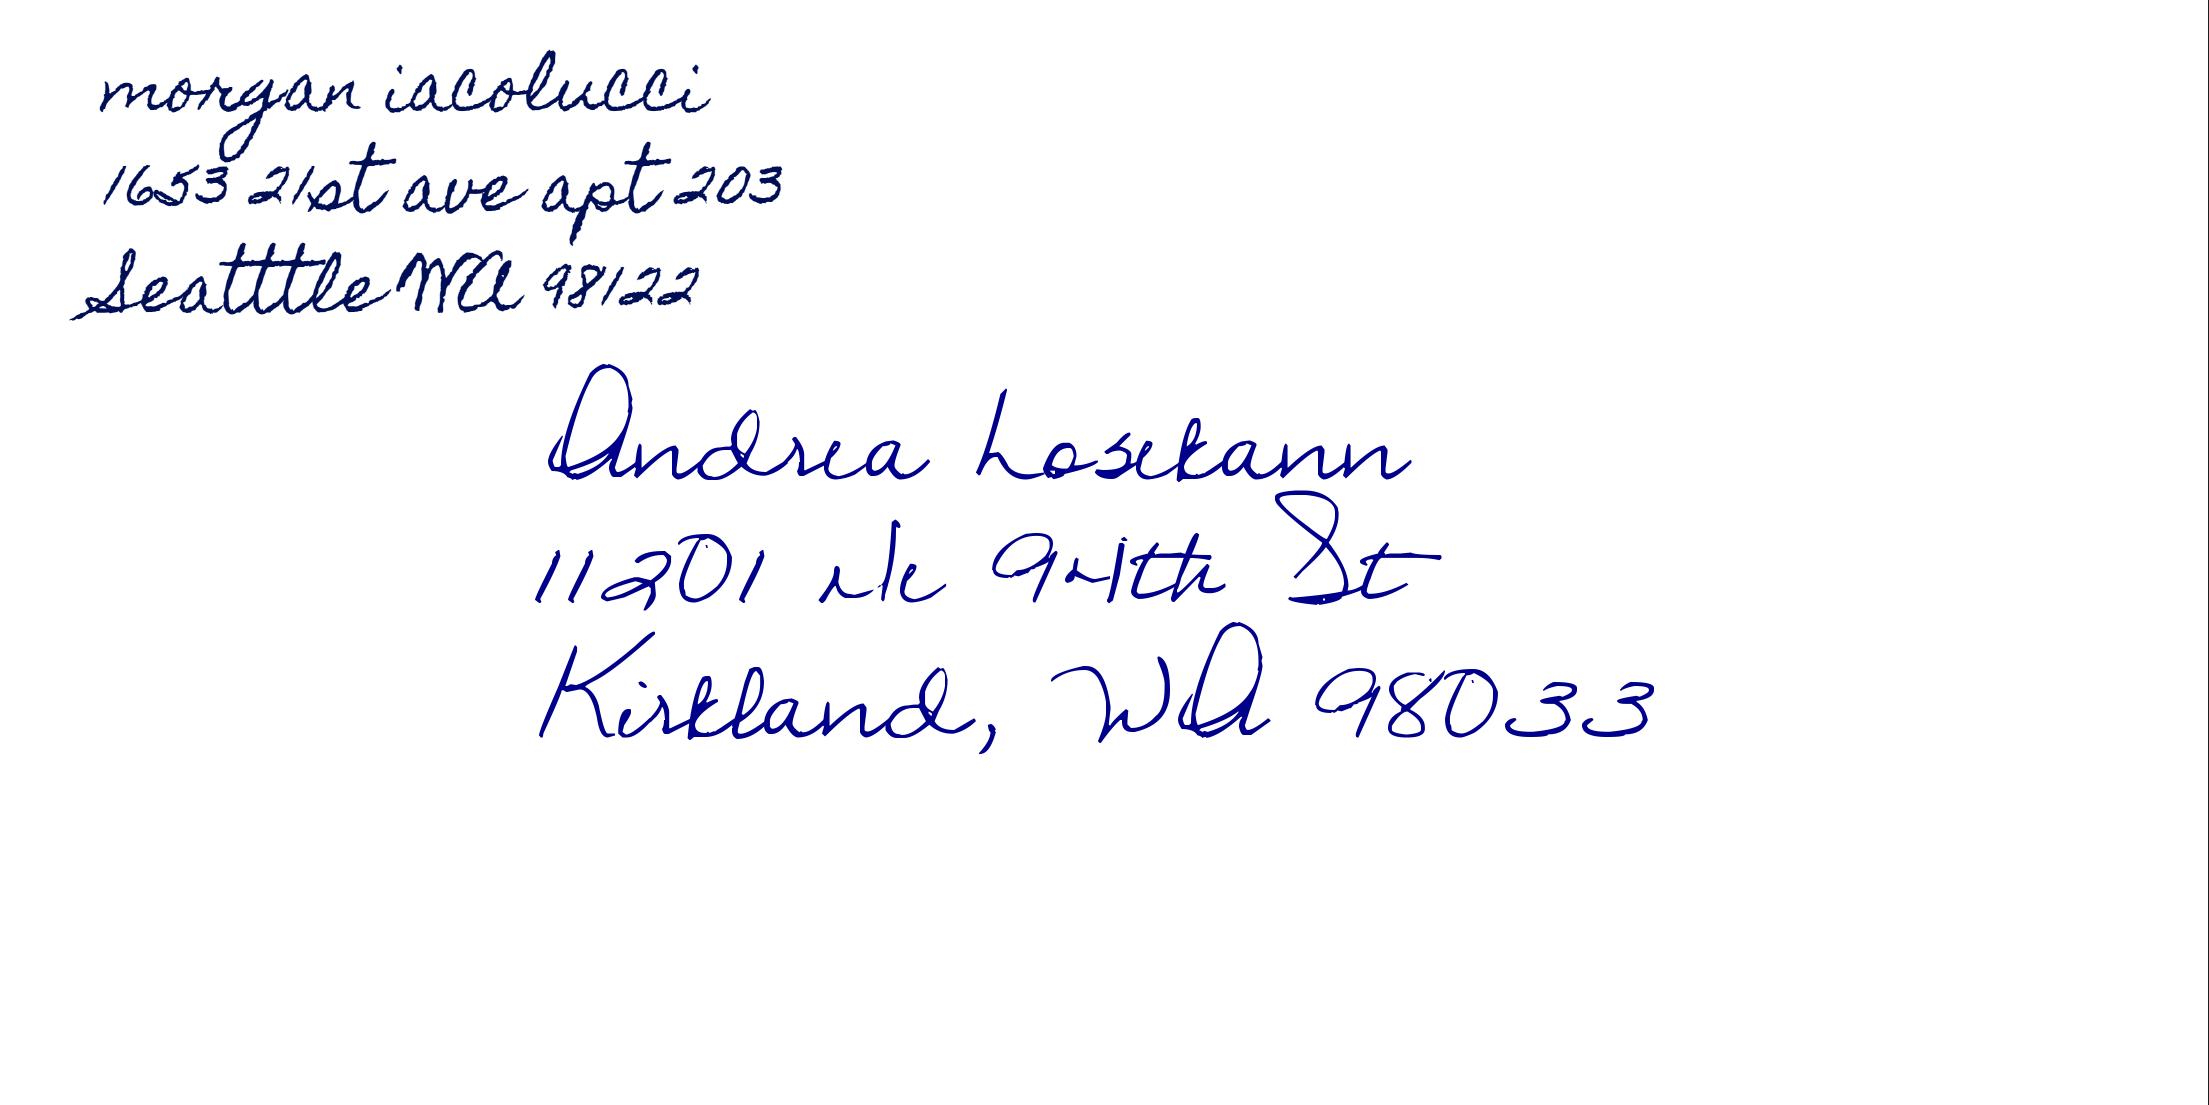 morgan iacolucci
1653 21st ave apt 203
Seatttle WA 98122
Andrea Losekann
11201 Ne 94th St
Kirkland, WA 98033